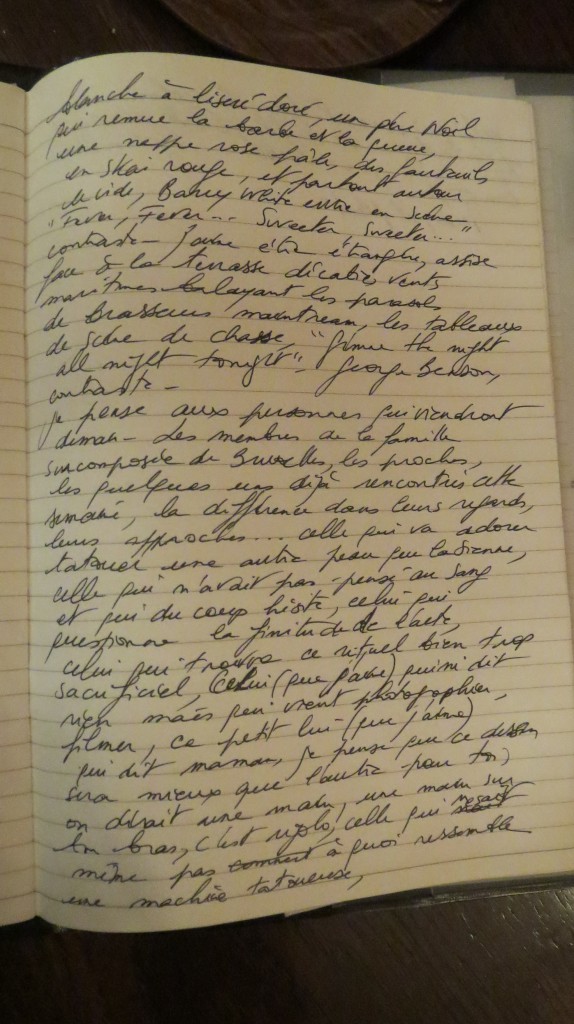 blanche à liseré doré, un père Noël
qui remue la barbe et la queue,
une nappe rose pâle, des fauteuils
en skaï rouge, et partout autour
le vide, Barry White entre en scène
"Fever, Fever... Sweeter, Sweeter..."
contraste - J'aime être étrangère, assise
face à la terrasse décatie, vents
maritimes balayant les parasols
de Brasseurs mainstream, les tableaux
de scène de chasse, "Gimme the night
all night tonight". George Benson,
contraste -
je pense aux personnes qui viendront
demain - Les membres de la famille
surcomposée de Bruxelles, les proches,
les quelques uns déjà rencontrés cette
semaine, la différence dans leurs regards,
leurs approches... celle qui va adorer
tatouer une autre peau que la sienne,
celle qui n'avait pas pensé au sang
et qui du coup hésite, celui qui
questionne la finitude de l'acte,
celui qui trouve ce rituel bien trop
sacrificiel, celui (que j'aime) qui ne dit
rien mais qui vient photographier,
filmer, ce petit lui (que j'aime)
qui dit maman, je pense que ce dessin
sera mieux que l'autre pour toi,
on dirait une main, une main sur
ton bras, c'est rigolo, celle qui ne sait
même pas comment à quoi ressemble
une machine tatoueuse,